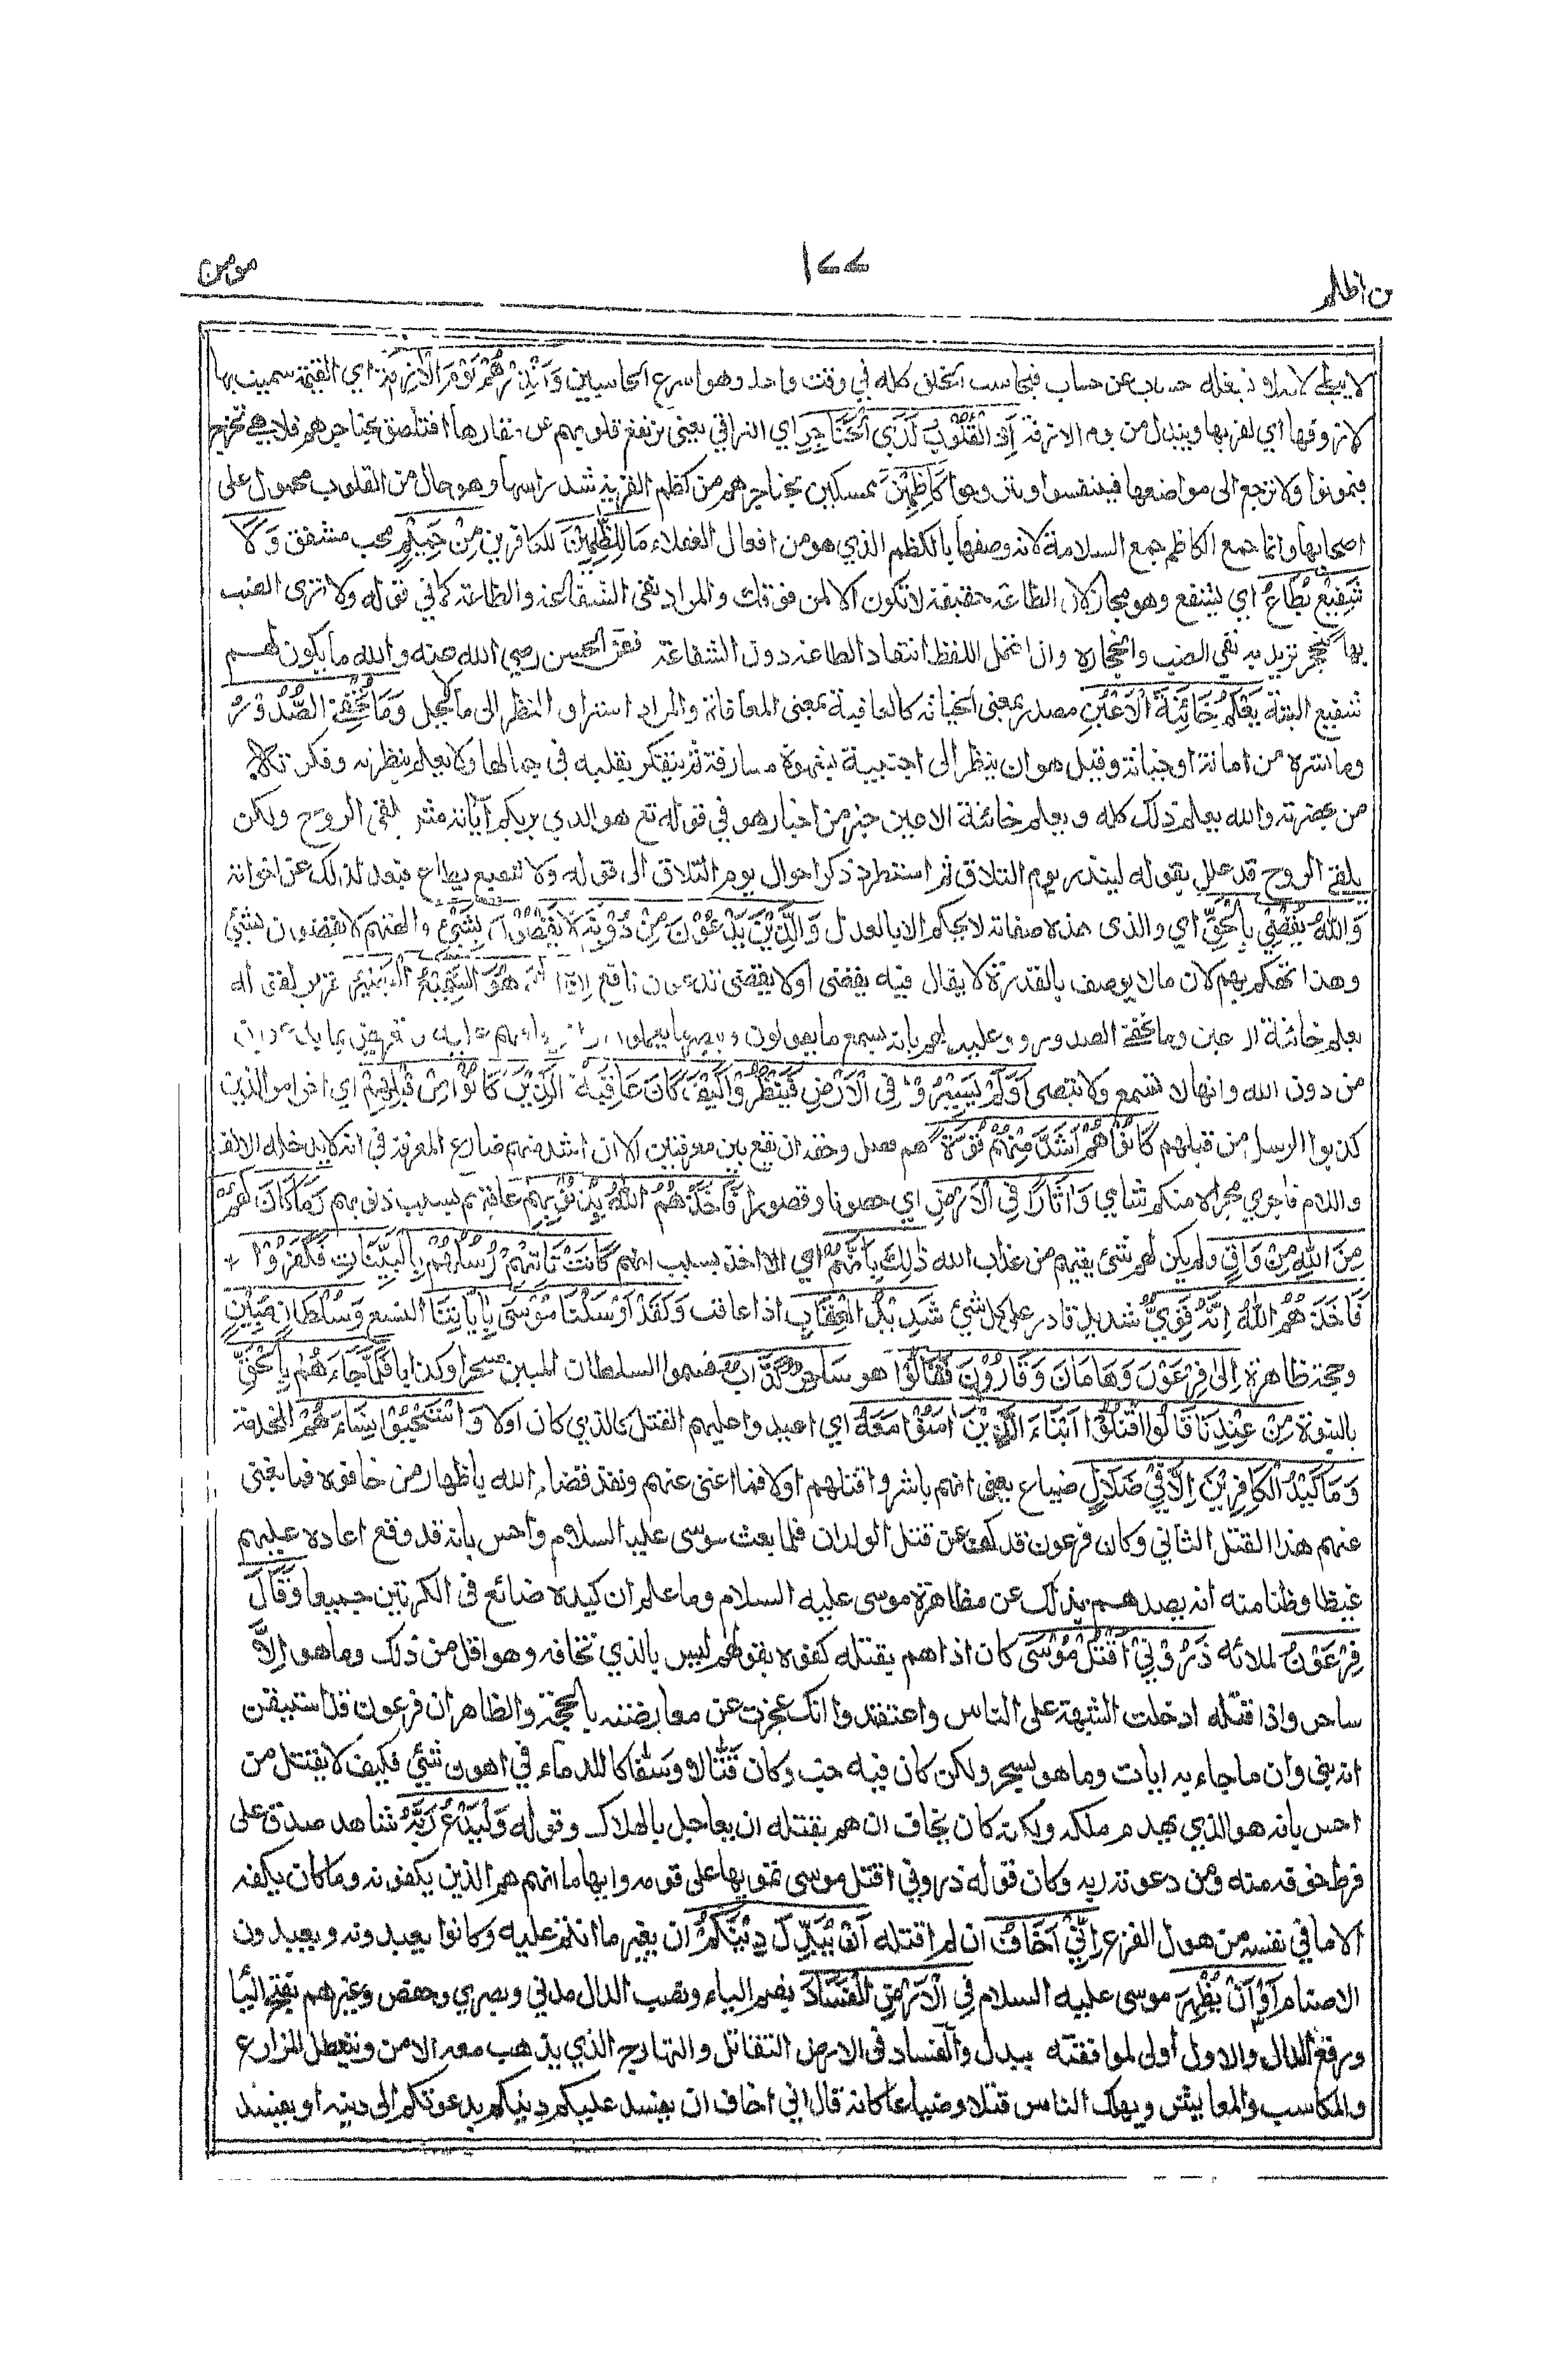 من اظلم
١٢٢
مومن
لا يبطئ لا يشغله حساب عن حساب فيحاسب الخلق كله في وقت واحد وهو اسرع الحاسبين وَاَنْذِرْهُمْ يَوْمَ الْاٰزِفَةِ اي القيمة سميت بها
لازوفها اي لقربها ويبدل من يوم الازفة اِذِ الْقُلُوْبُ لَدَى الْحَنَاجِرِ اي التراقي يعني ترتفع قلوبهم عن مقارها فتلصق بحناجرهم فلا هي تخرج
فيموتوا ولا ترجع الى مواضعها فيتنفسوا ويتروحوا كَاظِمِيْنَ ممسكين بحناجرهم من كظم القربة شد راسها وهو حال من القلوب محمول على
اصحابها وانما جمع الكاظم جمع السلامة لانه وصفها بالكظم الذي هو من افعال العقلاء مَا لِلظّٰلِمِيْنَ للكافرين مِنْ حَمِيْمٍ محب مشفق وَّلَا
شَفِيْعٍ يُّطَاعُ اي يشفع وهو مجاز لان الطاعة حقيقة لا تكون الا لمن فوقك والمراد نفي الشفاعة والطاعة كما في قوله ولا ترى الضب
بها ينجحر نريد به نفي الضب وانجحاره وان احتمل اللفظ انتفاء الطاعة دون الشفاعة فعن الحسن رضي الله عنه والله ما يكون لهم
شفيع البتة يَعْلَمُ خَائِنَةَ الْاَعْيُنِ مصدر بمعنى الخيانة كالعافية بمعنى المعافاة والمراد استراق النظر الى ما لا يحل وَمَا تُخْفِى الصُّدُوْرُ
وما تسره من امانة او خيانة وقيل هو ان ينظر الى اجنبية بشهوة مسارقة ثم يتفكر بقلبه في جمالها ولا يعلم بنظرته وفكرته
من بحضرته والله يعلم ذلك كله و يعلم خائنة الاعين خبر من اخبار هو في قوله تع هو الذي يريكم اٰياته مثل يلقى الروح ولكن
يلقى الروح قد علل بقوله لينذر يوم التلاق ثم استطرد ذكر احوال يوم التلاق الى قوله ولا شفيع يطاع فبعد لذلك عن اخواته
وَاللهُ يَقْضِيْ بِالْحَقِّ اي والذى هذه صفاته لا يحكم الا بالعدل وَالَّذِيْنَ يَدْعُوْنَ مِنْ دُوْنِهٖ لَا يَقْضُوْنَ بِشَيْءٍ والهتهم لا يقضون بشئ
وهذا تهكم بهم لان ما لا يوصف بالقدرة لا يقال فيه يقضى او لا يقضى تدعون نافع اِنَّ اللهَ هُوَ السَّمِيْعُ الْبَصِيْرُ تقرير لقوله
يعلم خائنة الاعين وما تخفى الصدور ووعيد لهم بانه يسمع ما يقولون ويبصر ما يعملون وانه يعاقبهم عليه وتعريض بما يدعون
من دون الله وانها لا تسمع ولا تبصر اَوَلَمْ يَسِيْرُوْا فِى الْاَرْضِ فَيَنْظُرُوْا كَيْفَ كَانَ عَاقِبَةُ الَّذِيْنَ كَانُوْا مِنْ قَبْلِهِمْ اي اخر امر الذين
كذبوا الرسل من قبلهم كَانُوْا هُمْ اَشَدَّ مِنْهُمْ قُوَّةً هم فصل وحقه ان يقع بين معرفتين الا ان اشد منهم ضارع المعرفة في انه لا يدخله الالف
واللام فاجري مجراه منكم شامي وَاٰثَارًا فِى الْاَرْضِ اي حصونا وقصورا فَاَخَذَهُمُ اللهُ بِذُنُوْبِهِمْ عاقبهم بسبب ذنوبهم وَمَا كَانَ لَهُمْ
مِنَ اللهِ مِنْ وَّاقٍ ولم يكن لهم شئ يقيهم من عذاب الله ذٰلِكَ بِاَنَّهُمْ اي الاخذ بسبب انهم كَانَتْ تَّاْتِيْهِمْ رُسُلُهُمْ بِالْبَيِّنَاتِ فَكَفَرُوْا
فَاَخَذَهُمُ اللهُ اِنَّهٗ قَوِيٌّ شديد قادر على كل شئ شَدِيْدُ الْعِقَابِ اذا عاقب وَلَقَدْ اَرْسَلْنَا مُوْسٰى بِاٰيَاتِنَا التسع وَسُلْطَانٍ مُّبِيْنٍ
وحجة ظاهرة اِلٰى فِرْعَوْنَ وَهَامَانَ وَقَارُوْنَ فَقَالُوْا هو سَاحِرٌ كَذَّابٌ فسموا السلطان المبين سحرا وكذابا فَلَمَّا جَاءَهُمْ بِالْحَقِّ
بالنبوة مِنْ عِنْدِنَا قَالُوا اقْتُلُوْا اَبْنَاءَ الَّذِيْنَ اٰمَنُوْا مَعَهٗ اي اعيدوا عليهم القتل كالذي كان اولا وَاسْتَحْيُوْا نِسَاءَهُمْ للخدمة
وَمَا كَيْدُ الْكَافِرِيْنَ اِلَّا فِيْ ضَلَالٍ ضياع يعني انهم باشروا قتلهم اولا فما اغنى عنهم ونفذ قضاء الله باظهار من خافوه فما يغنى
عنهم هذا القتل الثاني وكان فرعون قد كف عن قتل الولدان فلما بعث موسى عليه السلام واحس بانه قد وقع اعاده عليهم
غيظا وظنا منه انه يصدهم بذلك عن مظاهرة موسى عليه السلام وما علم ان كيده ضائع فى الكرتين جميعا وَقَالَ
فِرْعَوْنُ لملائه ذَرُوْنِيْ اَقْتُلْ مُوْسٰى كان اذا هم بقتله كفوه بقولهم ليس بالذي تخافه وهو اقل من ذلك وما هو اِلَّا
ساحر واذا قتلته ادخلت الشبهة على الناس واعتقدوا انك عجزت عن معارضته بالحجة والظاهر ان فرعون قد استيقن
انه نبي وان ما جاء به ايات وما هو بسحر ولكن كان فيه خب وكان قتالا وسفاكا للدماء في اهون شئ فكيف لا يقتل من
احس بانه هو الذي يهدم ملكه ولكنه كان يخاف ان هم بقتله ان يعاجل بالهلاك وقوله وَلْيَدْعُ رَبَّهٗ شاهد صدق على
فرط خوفه منه ومن دعوته ربه وكان قوله ذروني اقتل موسى تمويها على قومه وايهاما انهم هم الذين يكفونه وما كان يكفه
الا ما في نفسه من هول الفزع اِنِّيْ اَخَافُ ان لم اقتله اَنْ يُّبَدِّلَ دِيْنَكُمْ ان يغير ما انتم عليه وكانوا يعبدونه ويعبدون
الاصنام اَوْ اَنْ يُّظْهِرَ موسى عليه السلام فِى الْاَرْضِ الْفَسَادَ بضم الياء ونصب الدال مدني وبصري وحفص وغيرهم بفتح اليا
ورفع الدال والاول أولى لموافقته يبدل والفساد فى الارض التقاتل والتهارج الذي يذهب معه الامن وتتعطل المزارع
والمكاسب والمعايش ويهلك الناس قتلا وضياعا كانه قال اني اخاف ان يفسد عليكم دينكم بدعوتكم الى دينه او يفسد